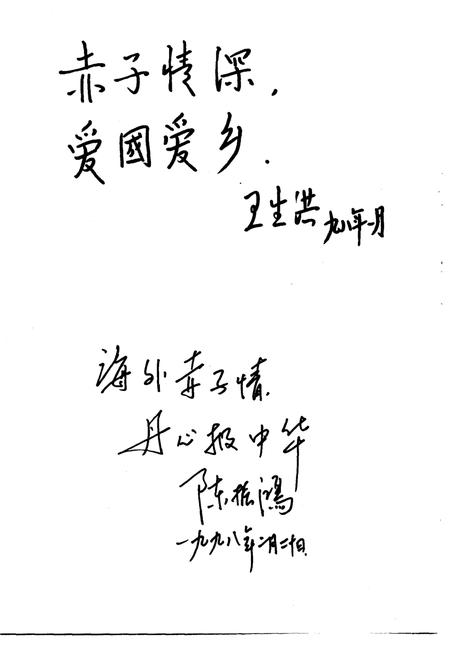 赤子情深，
爱國爱乡.
王生洪 九八年一月
海外赤子情
丹心报中华
陈振鸿
一九九八年二月二十日